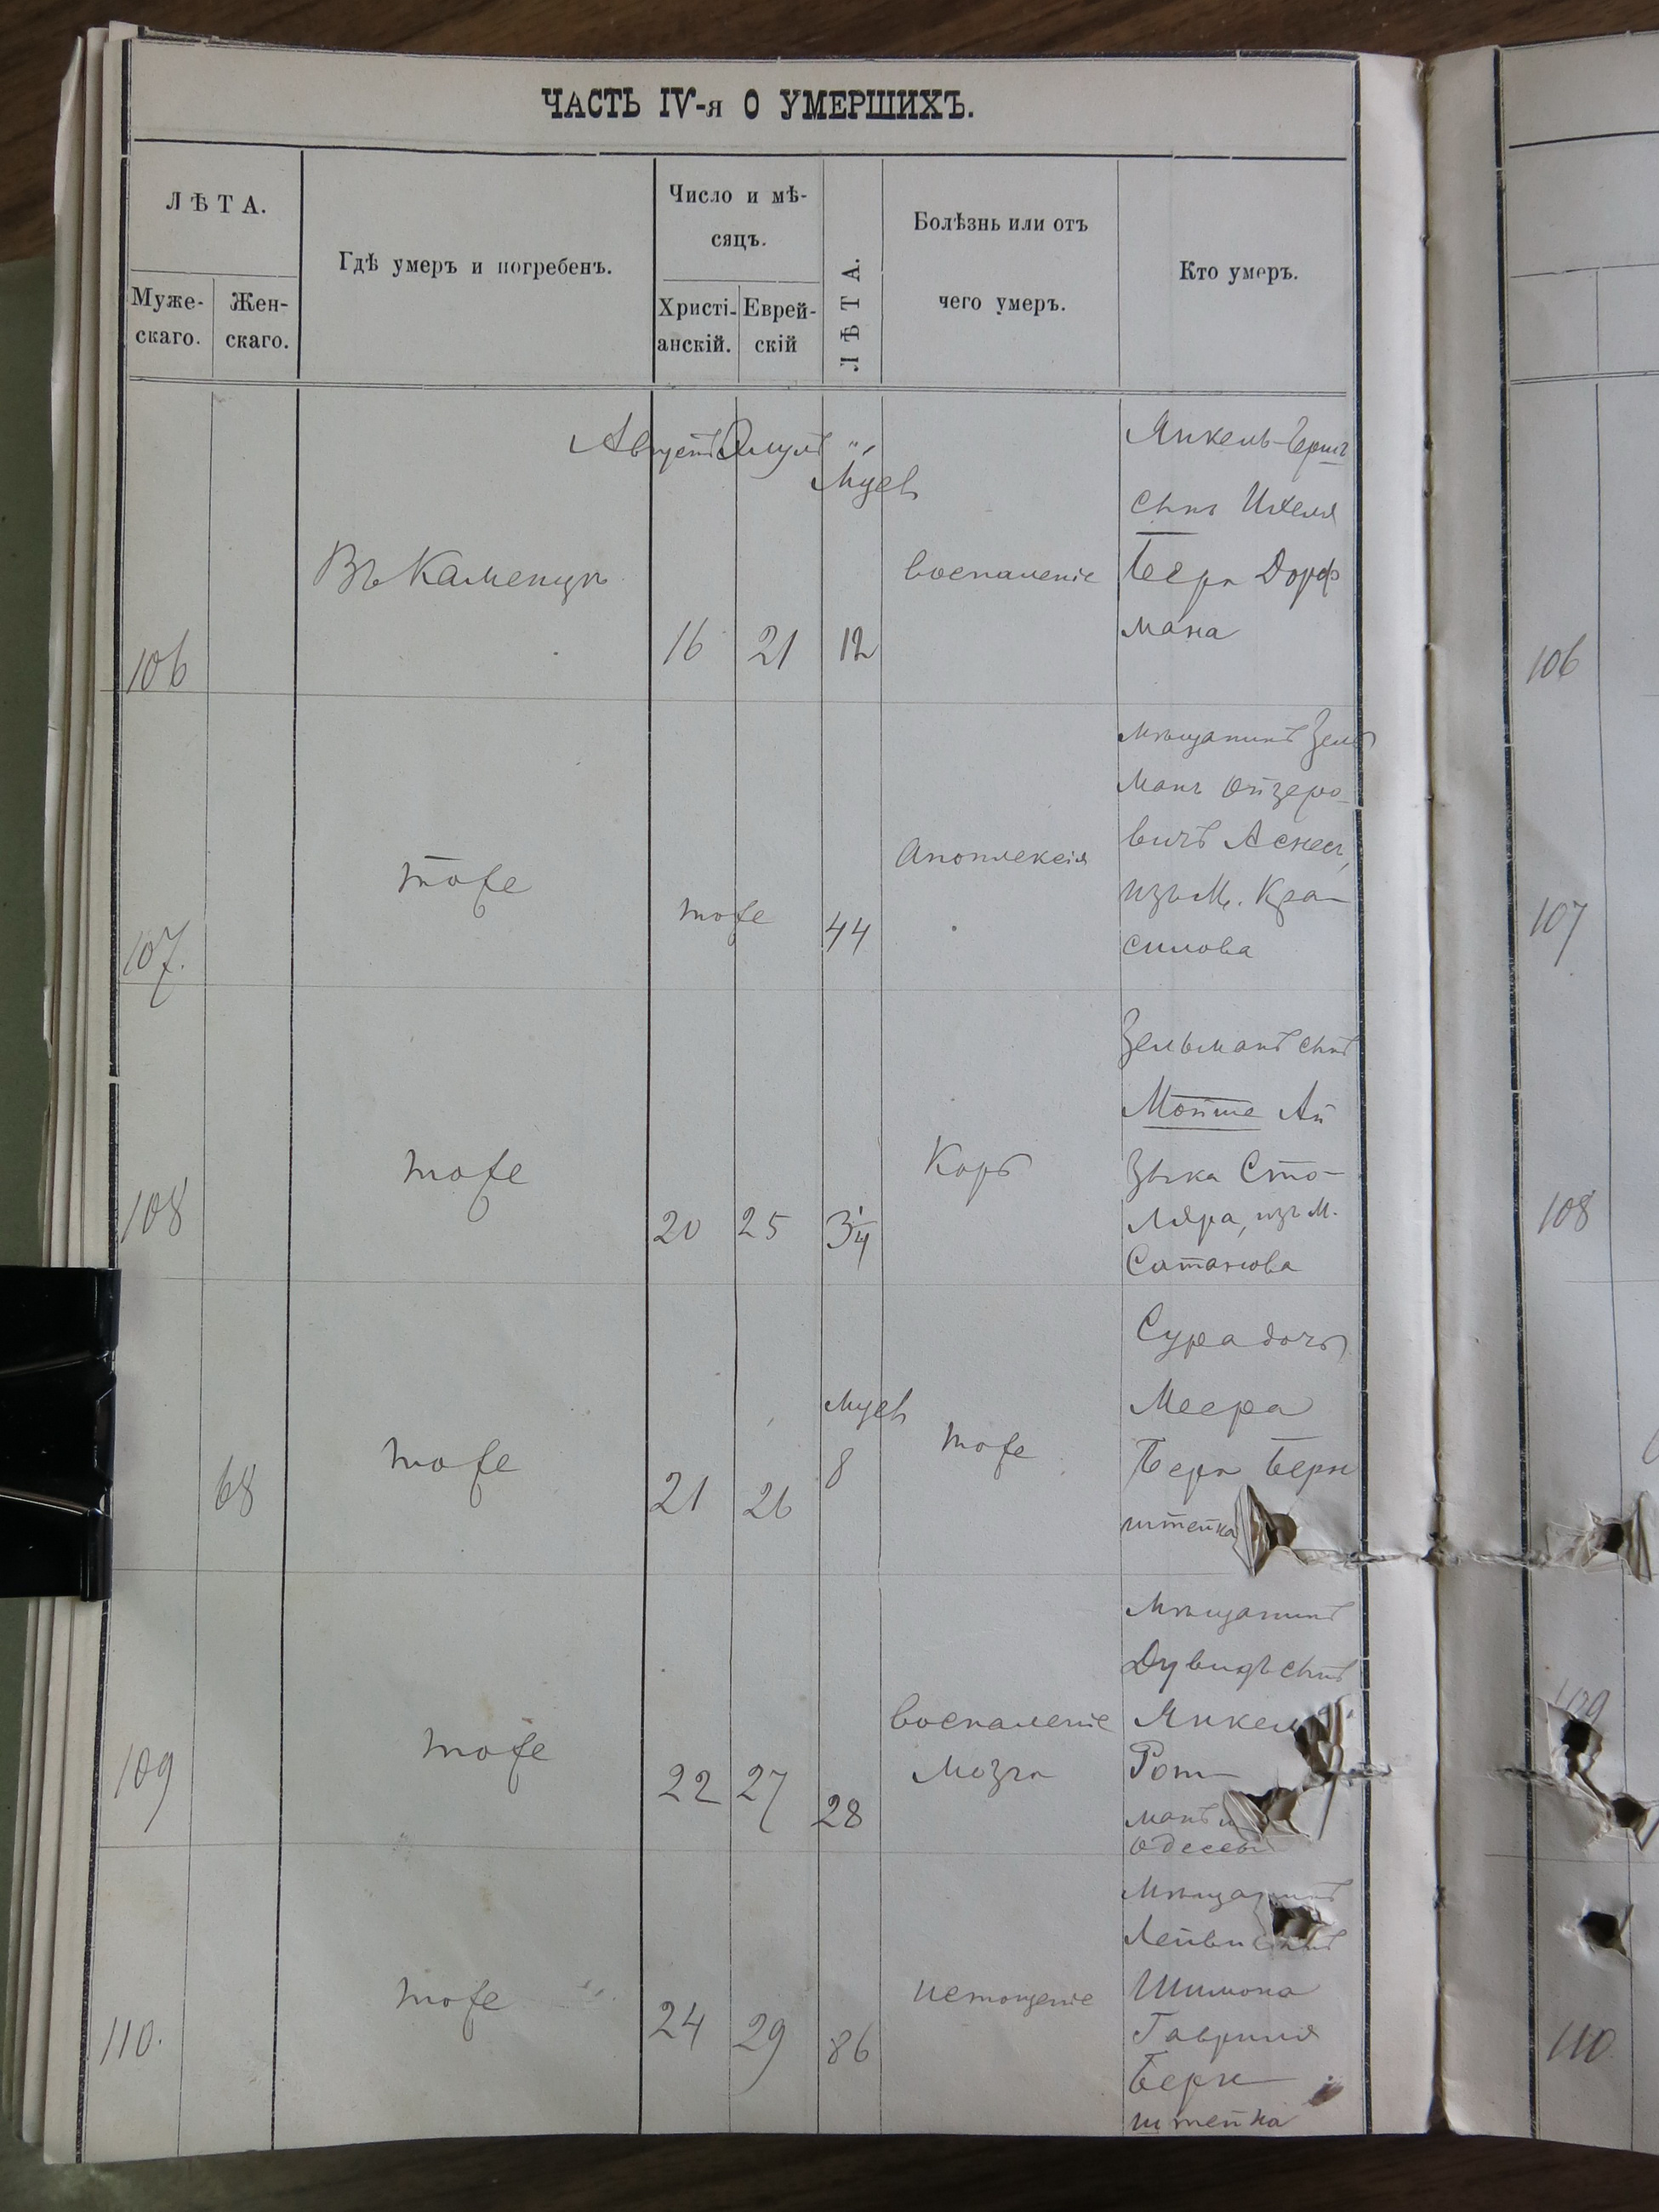 ЧАСТЬ IV-я О УМЕРШИХЪ.
ЛѢТА.
Муже-
скаго.
Жен-
скаго.
Гдѣ умеръ и погребенъ.
Число и мѣ-
сяцъ.
Христі-
анскій.
Еврей-
скій
ЛѢТА.
Болѣзнь или отъ
чего умеръ.
Кто умеръ.
Августъ Элулъ
106
Въ Каменцѣ
16
21
12
воспаленіе
Янкель-Герш
сынъ Ихеля
Бера Дорф
мана
106
107.
тоже
тоже
44
Апоплексія
мѣщанинъ Зель
манъ Ойзеро-
вичъ
изъ М. Кра-
силова
107
108
тоже
20
25
3 1/4
Корь
Зельманъ сынъ
Мойше Ай
зыка Сто-
ляра, изъ М.
Сатанова
108
68
тоже
21
26
8
тоже
Сура дочь
Меера
Бера Берн
штейна
109
тоже
22
27
28
воспаленіе
мозга
Мѣщанинъ
Дувидъ сынъ
Янкеля
Рот
манъ
Одессы
109
110.
тоже
24
29
86
истощеніе
Мѣщанинъ
Шимона
Гавриля
Берн
штейна
110